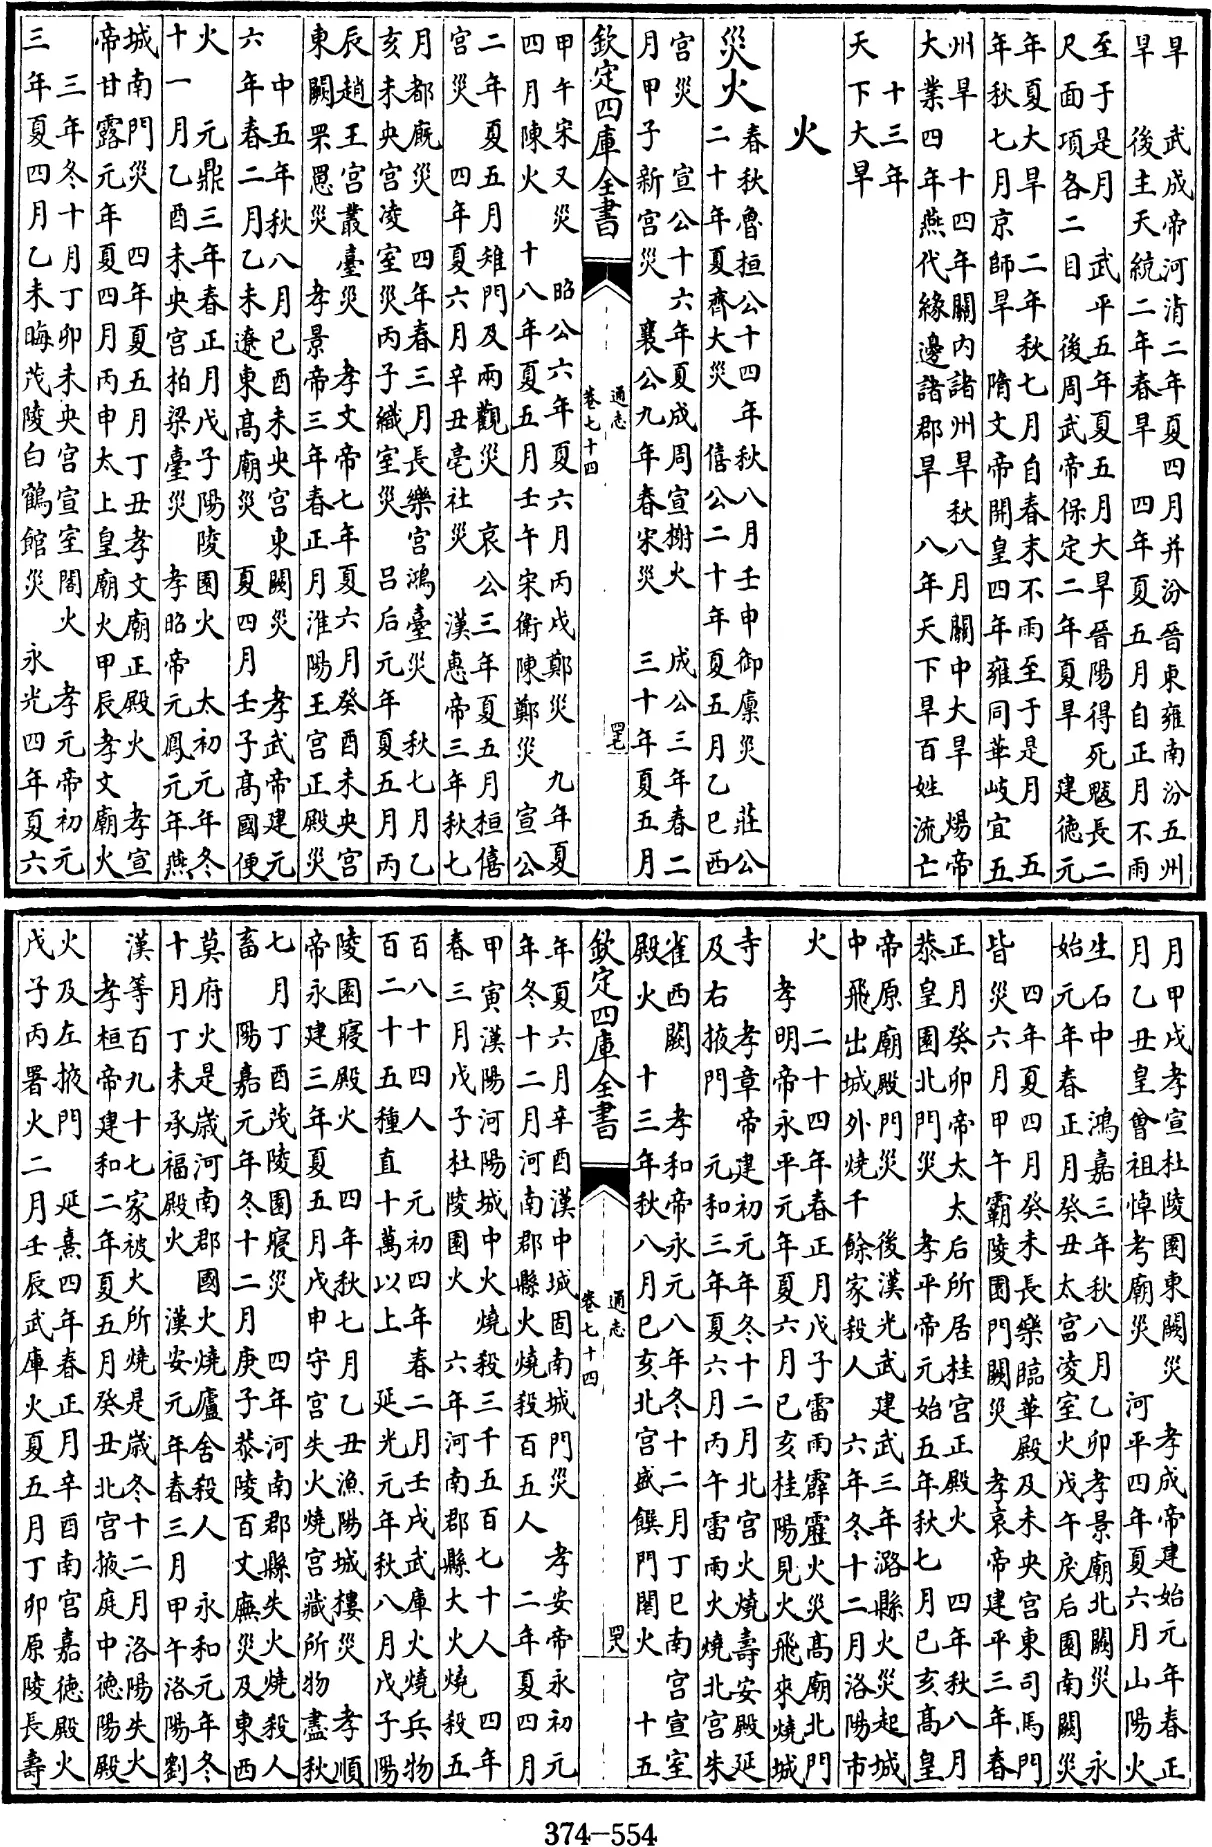 旱　武成帝河清二年夏四月并汾晉東雍南汾五州
旱　後主天統二年春旱　四年夏五月自正月不雨
至于是月　武平五年夏五月大旱晉陽得死魃長二
尺面項各二目　後周武帝保定二年夏旱　建德元
年夏大旱　二年秋七月自春末不雨至于是月　五
年秋七月京師旱　隋文帝開皇四年雍同華岐宜五
州旱　十四年關内諸州旱秋八月關中大旱　煬帝
大業四年燕代緣邊諸郡旱　八年天下旱百姓流亡
十三年
天下大旱
火
災火
春秋魯桓公十四年秋八月壬申御廪災　莊公
二十年夏齊大災　僖公二十年夏五月乙巳西
宫災　宣公十六年夏成周宣榭火　成公三年春二
月甲子新宫災　襄公九年春宋災　三十年夏五月
欽定四庫全書
通志
卷七十四
四七
甲午宋又災　昭公六年夏六月丙戌鄭災　九年夏
四月陳火　十八年夏五月壬午宋衛陳鄭災　宣公
二年夏五月雉門及兩觀災　哀公三年夏五月桓僖
宫災　四年夏六月辛丑亳社災　漢惠帝三年秋七
月都廐災　四年春三月長樂宫鴻臺災　秋七月乙
亥未央宫凌室災丙子織室災　吕后元年夏五月丙
辰趙王宫叢臺災　孝文帝七年夏六月癸酉未央宫
東闕罘罳災　孝景帝三年春正月淮陽王宫正殿災
中五年秋八月己酉未央宫東闕災　孝武帝建元
六年春二月乙未遼東高廟災　夏四月壬子高國便
火　元鼎三年春正月戊子陽陵園火　太初元年冬
十一月乙酉未央宫柏梁臺災　孝昭帝元鳳元年燕
城南門災　四年夏五月丁丑孝文廟正殿火　孝宣
帝甘露元年夏四月丙申太上皇廟火甲辰孝文廟火
三年冬十月丁卯未央宫宣室閤火　孝元帝初元
三年夏四月乙未晦茂陵白鶴館災　永光四年夏六
月甲戌孝宣杜陵園東闕災　孝成帝建始元年春正
月乙丑皇曾祖悼考廟災　河平四年夏六月山陽火
生石中　鴻嘉三年秋八月乙卯孝景廟北闕災　永
始元年春正月癸丑太官凌室火戊午戾后園南闕災
四年夏四月癸未長樂臨華殿及未央宫東司馬門
皆災六月甲午霸陵園門闕災　孝哀帝建平三年春
正月癸卯帝太太后所居桂宫正殿火　四年秋八月
恭皇園北門災　孝平帝元始五年秋七月己亥高皇
帝原廟殿門災　後漢光武建武三年潞縣火災起城
中飛出城外燒千餘家殺人　六年冬十二月洛陽市
火　二十四年春正月戊子雷雨霹靂火災高廟北門
孝明帝永平元年夏六月己亥桂陽見火飛來燒城
寺　孝章帝建初元年冬十二月北宫火燒壽安殿延
及右掖門　元和三年夏六月丙午雷雨火燒北宫朱
雀西闕　孝和帝永元八年冬十二月丁巳南宫宣室
殿火　十三年秋八月己亥北宫盛饌門閣火　十五
欽定四庫全書
通志
卷七十四
四八
年夏六月辛酉漢中城固南城門災　孝安帝永初元
年冬十二月河南郡縣火燒殺百五人　二年夏四月
甲寅漢陽河陽城中火燒殺三千五百七十人　四年
春三月戊子杜陵園火　六年河南郡縣大火燒殺五
百八十四人　元初四年春二月壬戌武庫火燒兵物
百二十五種直十萬以上　延光元年秋八月戊子陽
陵園寢殿火　四年秋七月乙丑漁陽城樓災　孝順
帝永建三年夏五月戊申守宫失火燒宫藏所物盡秋
七月丁酉茂陵園寢災　四年河南郡縣失火燒殺人
畜　陽嘉元年冬十二月庚子恭陵百丈廡災及東西
莫府火是歲河南郡國火燒廬舍殺人　永和元年冬
十月丁未承福殿火　漢安元年春三月甲午洛陽劉
漢等百九十七家被火所燒是歲冬十二月洛陽失火
孝桓帝建和二年夏五月癸丑北宫掖庭中德陽殿
火及左掖門　延熹四年春正月辛酉南宫嘉德殿火
戊子丙署火二月壬辰武庫火夏五月丁卯原陵長壽
374-554